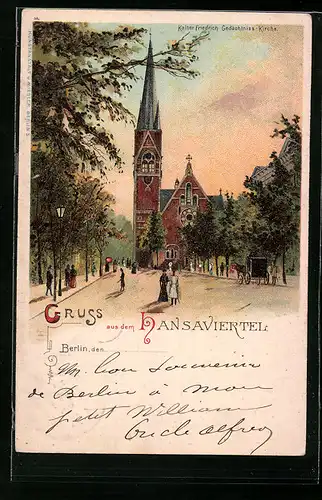 Kaiser Friedrich Gedächtniss-Kirche.
GRUSS aus dem HANSAVIERTEL
Berlin, den
Un bon Souvenir
de Berlin à mon
petit William
Oncle Alfred